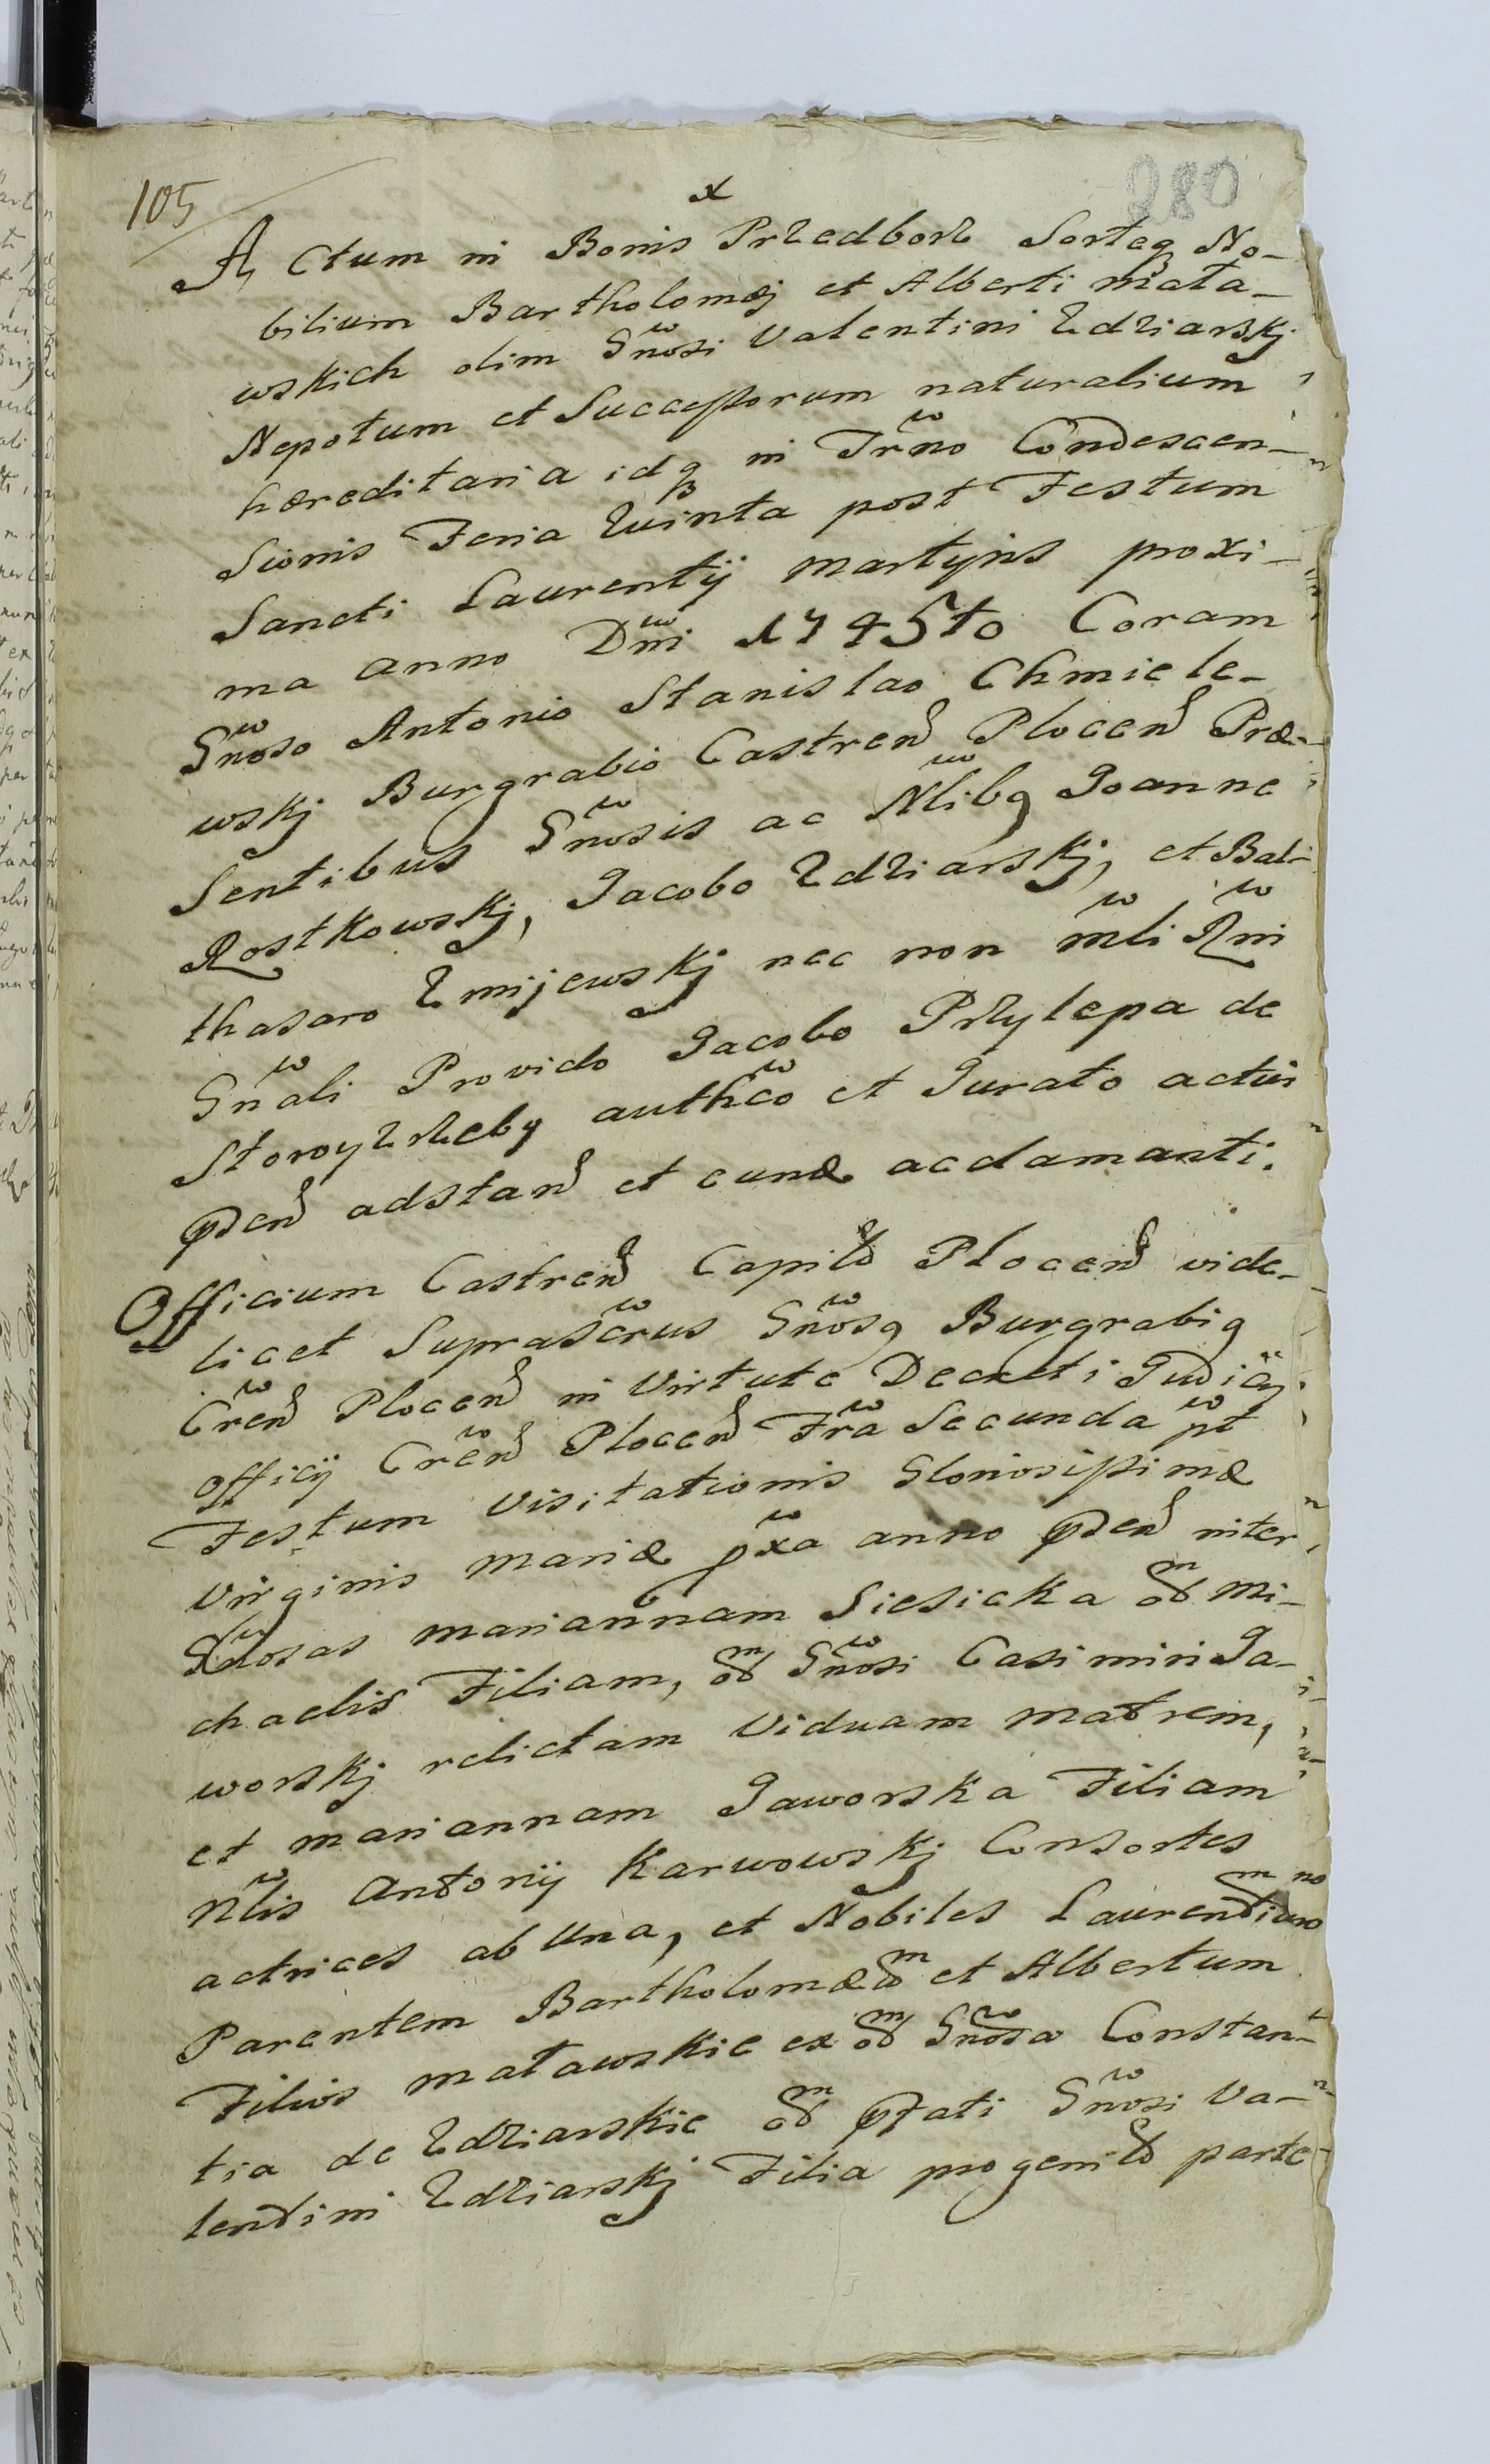 105
x
280
Actum in Bonis Przedborz Sorteq No-
bilium Bartholomæj et Alberti Mała-
wskich olim Gnosi Valentini Zdziarskj
Nepotum et Successorum naturalium
hæreditaria idq in Trno Condescen-
sionis Feria Quinta post Festum
Sancti Laurentij Martyris proxi-
ma anno Dni 1745to Coram
Gnoso Antonio Stanislao Chmiele-
wskj Burgrabio Castren Plocen Præ-
sentibus Gnosis ac Nlibq Joanne
Rostkowskj, Jacobo Zdziarskj, et Bal-
thasaro Zmijewskj nec non Mli Rni
Gnali Provido Jacobo Przylepa de
authco et Jurato actui
pden adstan et eund acclamanti.
Officium Castren Capitl Plocen vide-
licet Suprascrus Gnosq Burgrabiq
Cren Plocen in Virtute Decreti Judicij
Officij Cren Plocen Fra Secunda pt
Festum Visitationis Gloriosissimæ
Virginis Mariæ pxa anno pden inter
Gnosas Mariannam Siesicka od Mi-
chaelis Filiam, od Gnosi Casimiri Ja-
worskj relictam Viduam Matrem,
et Mariannam Jaworska Filiam
Nlis Antonij Karwowskj Consortes
actrices ab Una, et Nobiles Laurentium
Parentem Bartholomæum et Albertum
Filios Maławskie ex od Gnosa Constan-
tia de Zdziarskie od pfati Gnosi Va-
lentini Zdziarskj Filia progenit parte